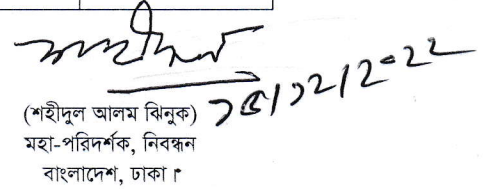 ১৫/১২/২০২২
(শহীদুল আলম ঝিনুক)
মহা-পরিদর্শক, নিবন্ধন
বাংলাদেশ, ঢাকা।